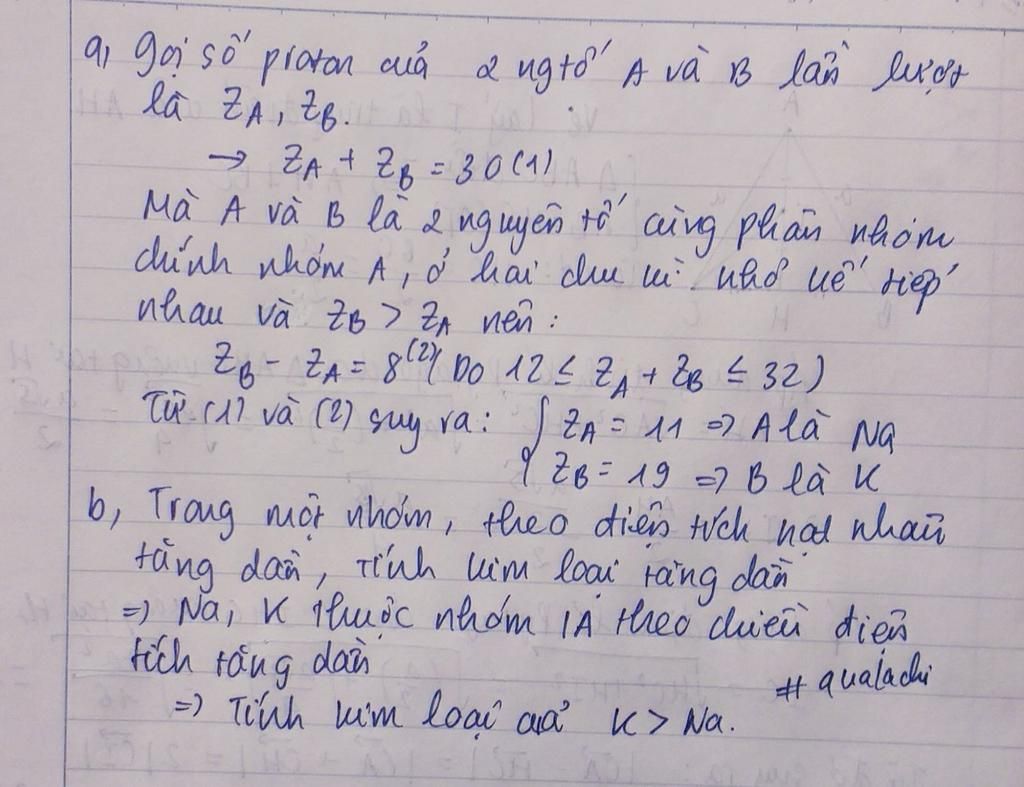 a, Gọi số proton của 2 ngtố A và B lần lượt
là ZA, ZB.
→ ZA + ZB = 30 (1)
Mà A và B là 2 nguyên tố cùng phân nhóm
chính nhóm A, ở hai chu kì nhỏ kế tiếp
nhau và ZB > ZA nên:
ZB - ZA = 8 (2) (Do 12 ≤ ZA + ZB ≤ 32)
Từ (1) và (2) suy ra: { ZA = 11 => A là Na
ZB = 19 => B là K
b, Trong một nhóm, theo điện tích hạt nhân
tăng dần, tính kim loại tăng dần
=> Na, K thuộc nhóm IA theo chiều điện
tích tăng dần
# qualachi
=> Tính kim loại của K > Na.